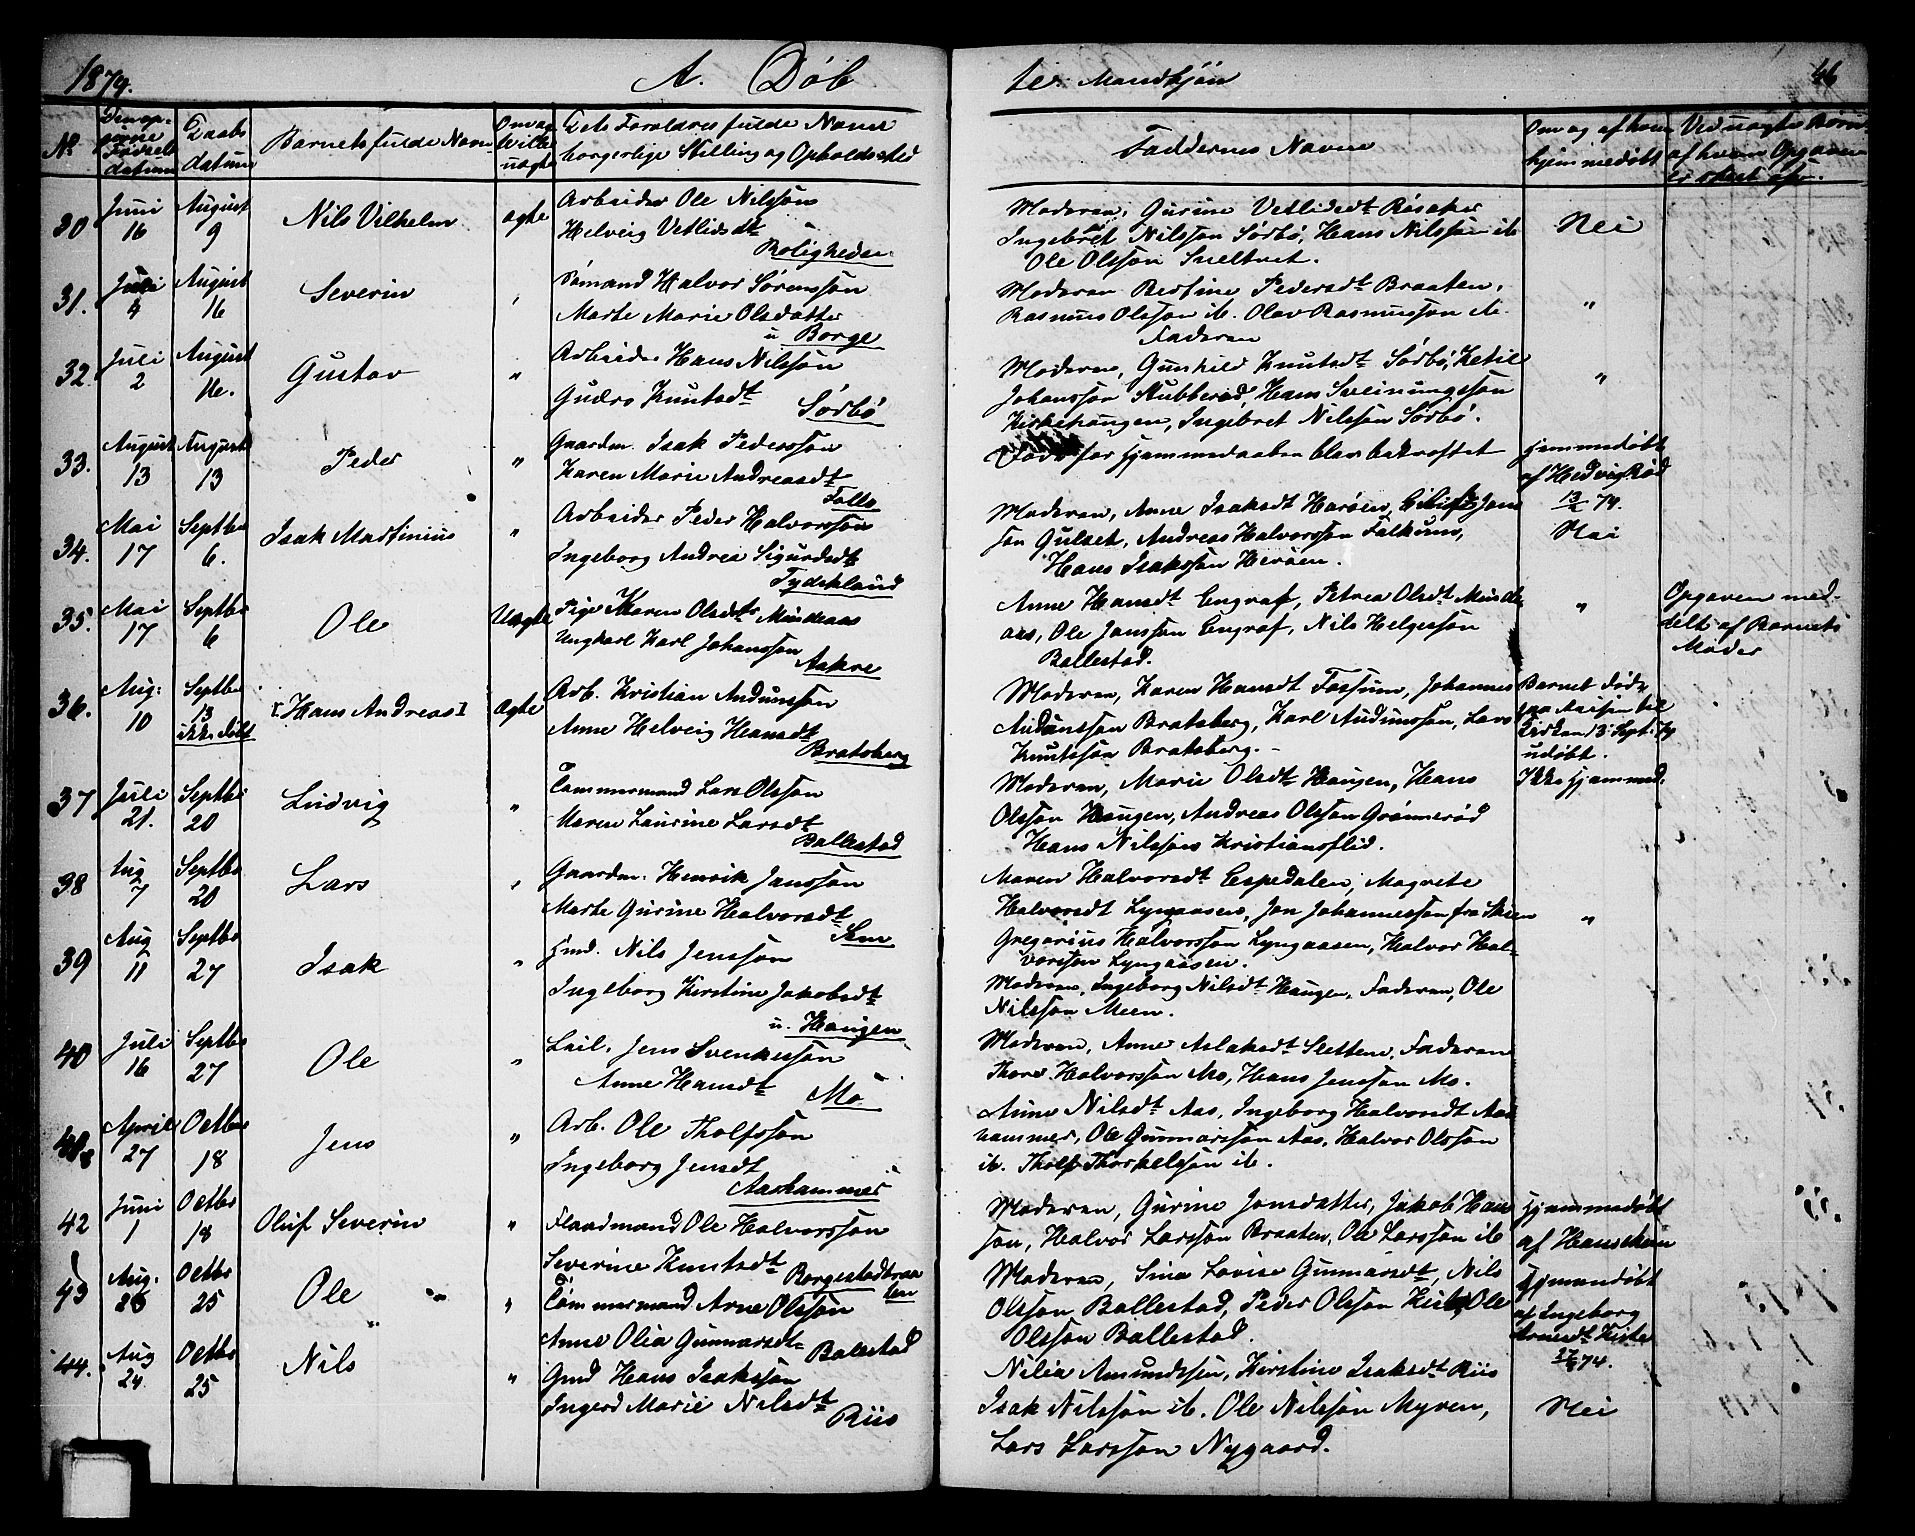 1874.
A. Døb
te. Mandkjön
46
No
Den op-
givne
Födsels
datum
Daabs
datum
Barnets fulde Navn
Om ægte
eller
uægte
Dets Foraldres fulde Navne
borgerlige Stilling og Opholdssted
Faddernes Navne
Om og af hvem
hjemmedøbt
Ved uægte Børn
af hvem Opgaven
er skeet
30
Juni
16
August
9
Nils Vilhelm
ægte
Arbeider Ole Nilsson
Helveig Vetlesdt
Roligheden
Moderen, Gurine Vetlesdt Røsaker
Ingebret Nilsson Sørbø, Hans Nilsson ib
Ole Olsson Sneltvet.
Nei
31.
Juli
4
August
16
Severin
Sömand Halvor Sørensson
Marte Marie Olsdatter
u Borge
Moderen Bertine Pedersdt Braaten,
Rasmus Olsson ib. Olav Rasmusson ib.
Faderen
"
32.
Juli
2
August
16.
Gustav
"
Arbeider Hans Nilsson
Gudro Knutsdt
Sørbø
Moderen, Gunhild Knutsdt Sørbø, Ketil
Johansson Stubberød, Hans Sveinungsson
Kirkehaugen, Ingebret Nilsson Sørbø.
"
33.
August
13
August
13
Peder
"
Gaardm. Isak Pedersson
Karen Marie Andreasdt
Follo
Døde før Hjemmedaaben blev bekræftet
Hjemmedøbt
af Hedvig Rød
74.
34.
Mai
17
Septbr
6.
Isak Martinius
"
Arbeider Peder Halvorsson
Ingeborg Andrea Sigurdsdt
Tydskland
Moderen, Anne Isaksdt Herøen, Jans
son Gulset, Andreas Halvorsson Falkum,
Hans Isaksson Herøen.
Nei
35.
Mai
17
Septbr
6
Ole
Uægte
Pige Karen Olsdt Mindeaas
Ungkarl Karl Johansson
Aakre
Anne Hansdt Lengraf, Petrea Olsdt Minde
aas, Ole Jansson Lengraf, Nils Helgesson
Ballestad.
"
Opgaven med-
delt af Barnets
Moder
36.
Aug:
10
Septbr
13
ikke døbt
[Hans Andreas]
ægte
Arb. Kristian Audunsson
Anne Helveig Hansdt
Bratsberg
Moderen, Karen Hansdt Fossum, Johannes
Audunsson Bratsberg, Karl Audunsson, Lars
Knutsson Bratsberg.
Barnet døde
paa Reisen til
Kirken 13 Sept. 74
udøbt.
37
Juli
21.
Septbr
20
Ludvig
"
Tømmermand Lars Olsson
Maren Laurine Larsdt
Ballestad
Moderen, Marie Olsdt Haugen, Hans
Olsson Haugen, Andreas Olsson Grønnerød
Hans Nilssen Kristianslid.
Ikke Hjemmed.
38
Aug
7
Septbr
20
Lars
Gaardm. Henrik Jansson
Marte Gurine Halvorsdt
Sem
Maren Halvorsdt Espedalen, Magrete
Halvorsdt Lyngaasen, Jon Johannesson fra Skien
Gregorius Halvorsson Lyngaasen, Halvor Hal-
vorsson Lyngaasen.
"
39
Aug
11
Septbr
27
Isak
Hmd. Nils Jensson
Ingeborg Kirstine Jakobsdt
u. Haugen
Moderen, Ingeborg Nilsdt Haugen, Faderen, Ole
Nilsson Meen.
40
Juli
16
Septbr
27
Ole
Leil. Jens Svenkesson
Anne Hansdt
Mo
Moderen, Anne Aslaksdt Sletten, Faderen
Thore Halvorsson Mo, Hans Jensson Mo.
41
April
27
Octbr
18
Jens
"
Arb. Ole Tholfsson
Ingeborg Jensdt
Aashammer
Anne Nilsdt Aas, Ingeborg Halvorsdt Aas
hammer, Ole Gunnarsson Aas, Halvor Olsson
ib. Tholf Thorkelsson ib.
42
Juni
1
Octbr
18
Oluf Severin
"
Flaadmand Ole Halvorsson
Severine Knutsdt
Borgestadbraa
ten
Moderen, Gurine Jonsdatter, Jakob Hans
son, Halvor Larsson Braaten, Ole Larsson ib
Hjemmedøbt
af Hans
43
Aug.
23
Octbr
25
Ole
"
Tømmermand Arne Olsson
Anne Olea Gunnarsdt
Ballestad
Moderen, Sina Lovise Gunnarsdt, Nils
Olsson Ballestad, Peder Olsson Kise, Ole
Olsson Ballestad.
Hjemmedøbt
af Ingeborg
Arnesdt Kise
74.
44.
Aug
24
Octbr
25
Nils
"
Gmd Hans Isaksson
Ingerd Marie Nilsdt
Riis
Nilia Amundssen, Kirstine Isaksdt Riis
Isak Nilsson ib. Ole Nilsson Myren,
Lars Larsson Nygaard.
Nei